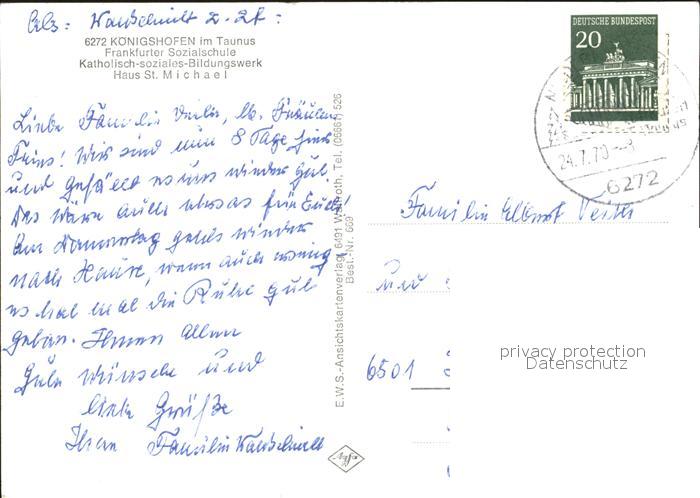 Abs: Wandschmidt z. Zt:
6272 KÖNIGSHOFEN im Taunus
Frankfurter Sozialschule
Katholisch-soziales-Bildungswerk
Haus St. Michael
Liebe Familie lb. Fräulein
Wir sind nun 8 Tage hier
und gefällt es uns wieder gut.
Das wäre auch etwas für Euch!
Am Donnerstag gehts wieder
nach Hause, wenn auch wenig
es hat mal die Ruhe gut
getan. Ihnen allen
Gute Wünsche und
liebe Grüße
Ihre Familie
E.W.S.-Ansichtskartenverlag, 6491 Wallroth, Tel. (06661) 526
Best.-Nr. 609
Agfa
DEUTSCHE BUNDESPOST
20
24.7.70-8
6272
Familie Albert
und
6501
privacy protection
Datenschutz